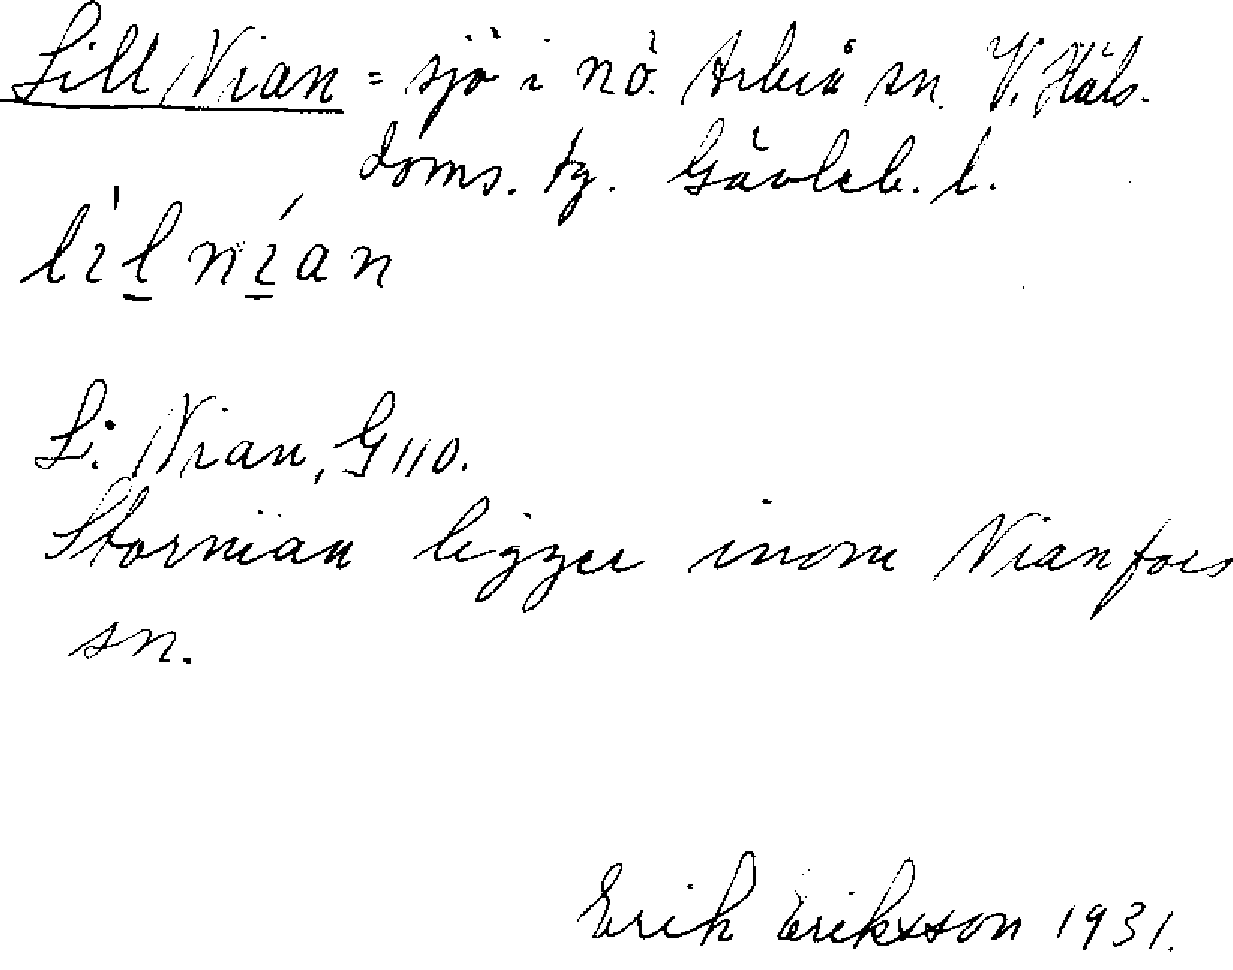 Lill Nian = sjö i nö. Arbrå sn. V. Häls.
doms. tg. Gävleb. l.
lìl nían
L: Nian, G 110.
Stornian ligger inom Nianfors
sn.
Erik Eriksson 1931.